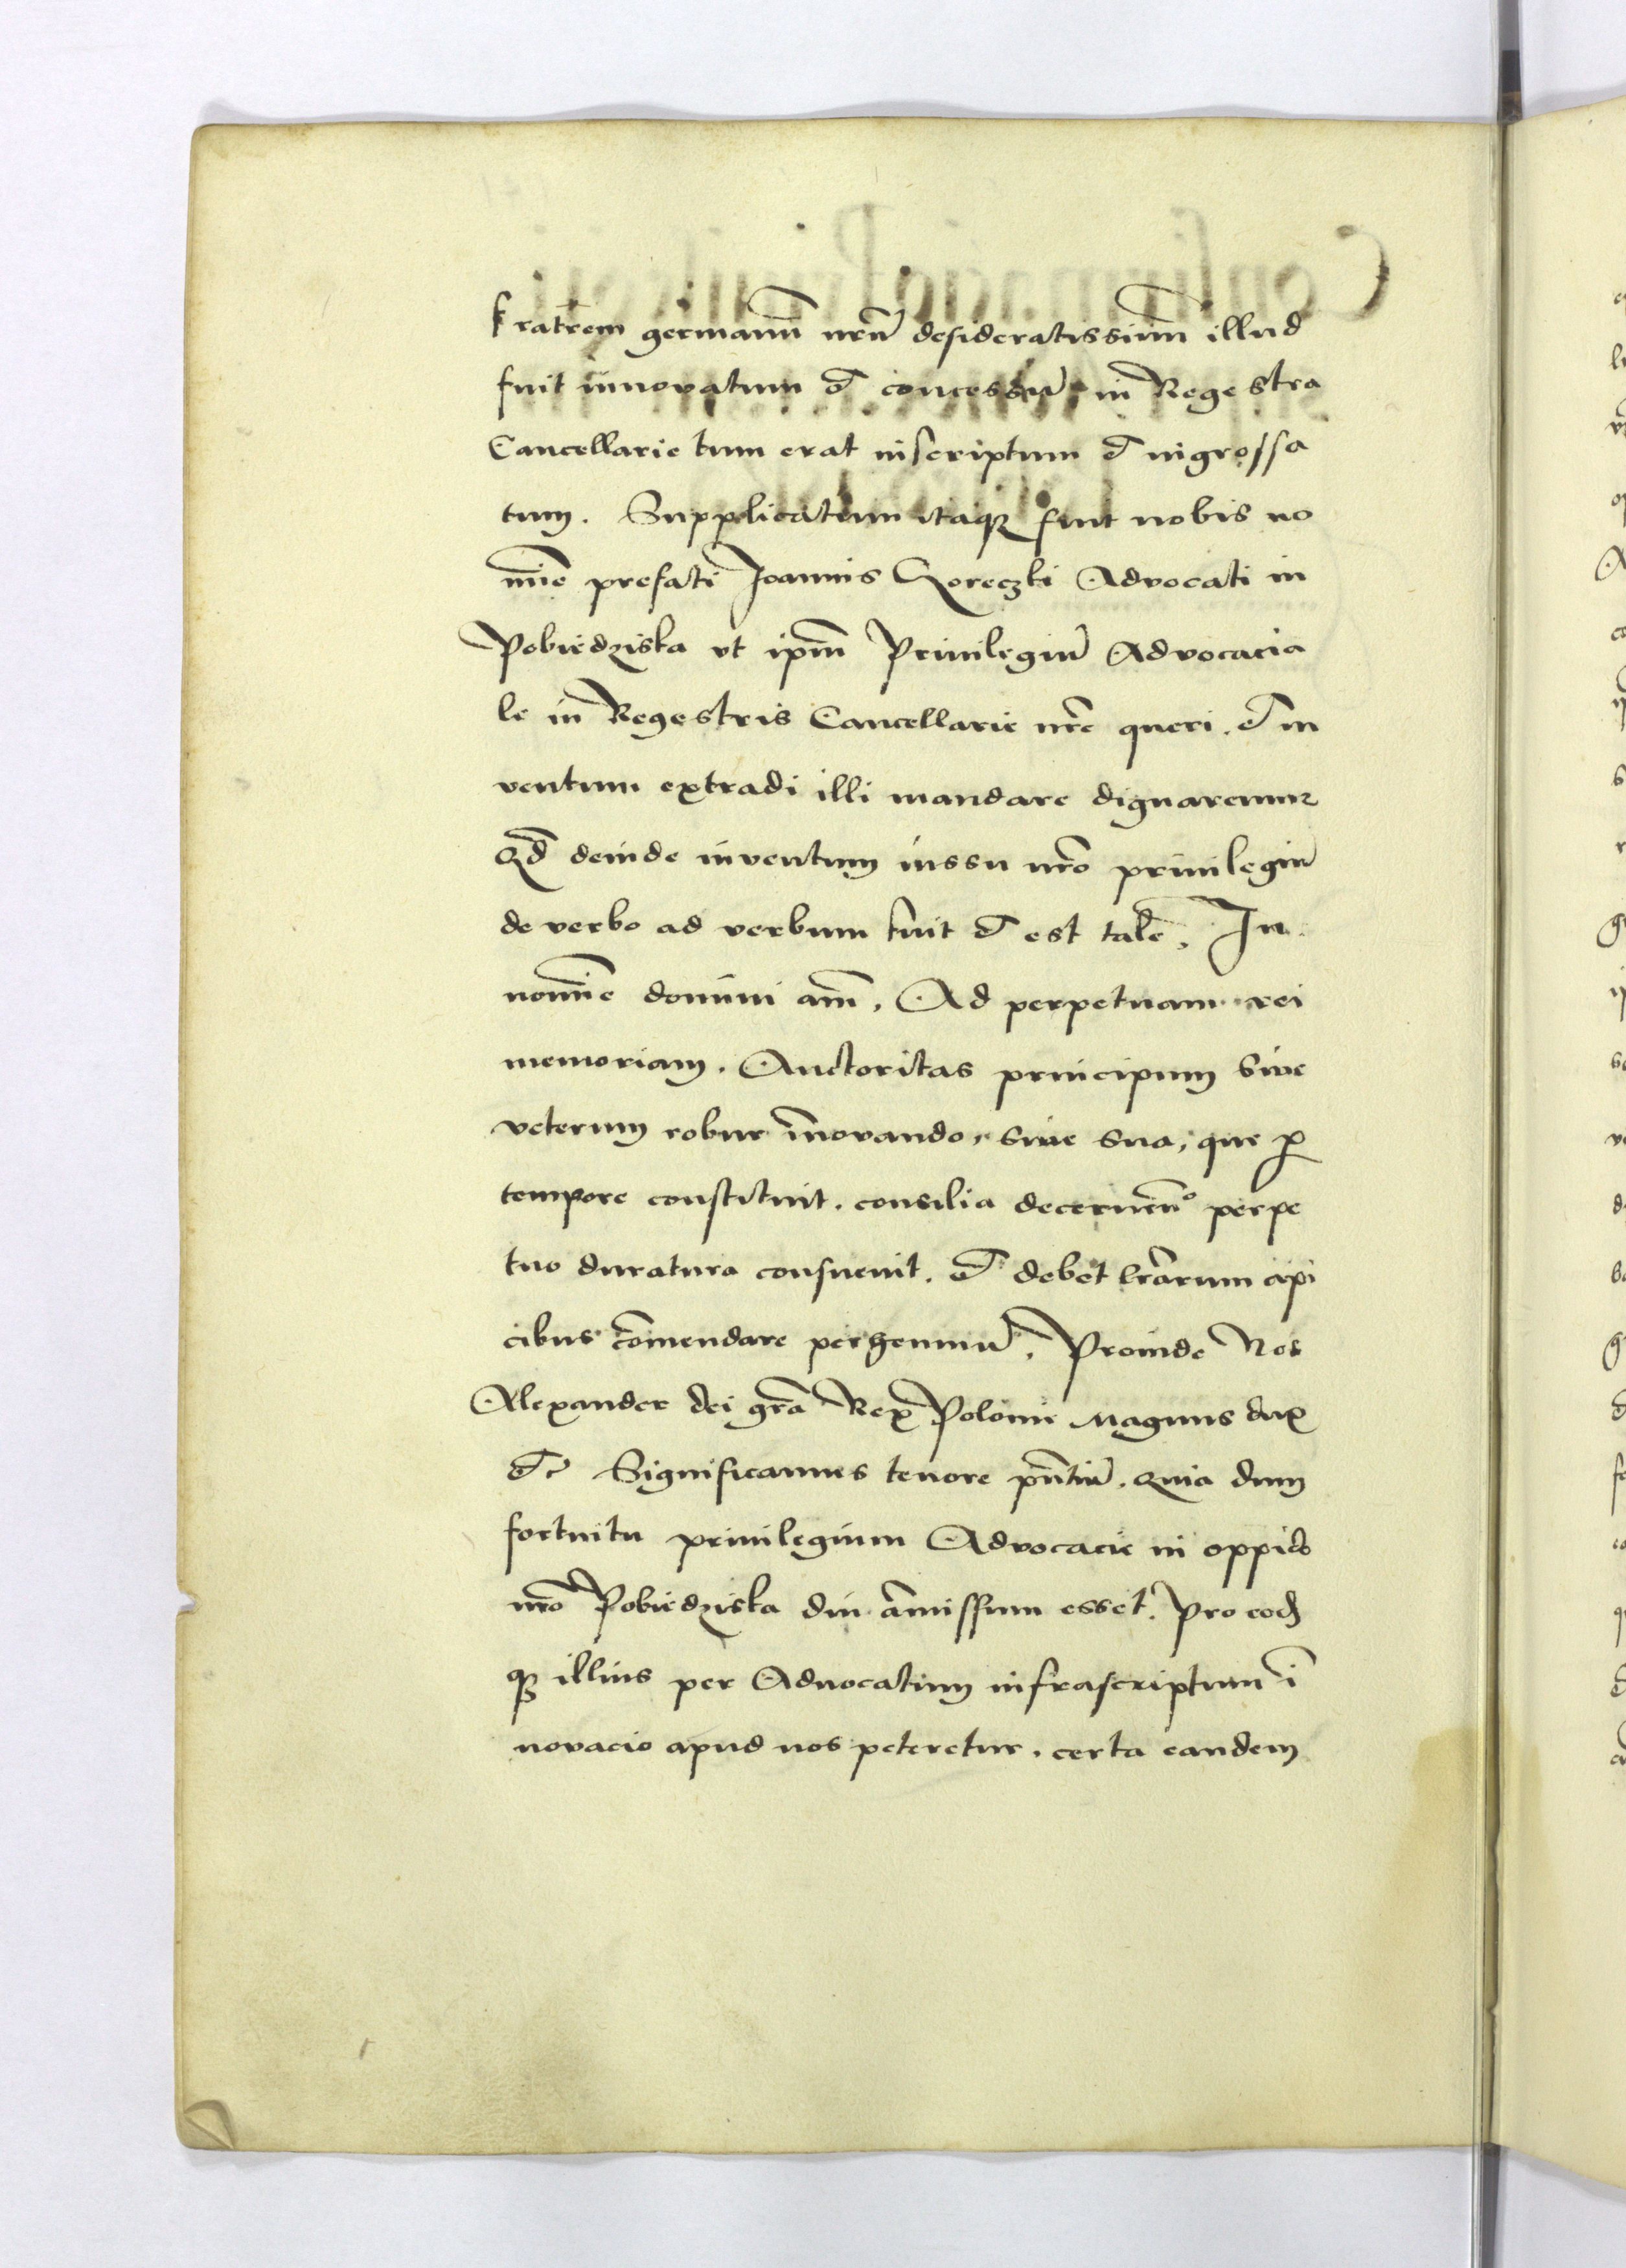 fratrem germanū nrū desideratissimū illud
fuit innovatum et concessū in Regestra
Cancellarie tum erat inscriptum et ingrossa
tum. Supplicatum itaqꝫ fuit nobis no
mīe prefati Joannis Advocati in
Pobiedziska vt ipm̄ Privilegiū Advocacia
le in Regestris Cancellarie nr̄e queri. et in
ventum extradi illi mandare dignaremur
Qd̄ deinde inventum iussu nr̄o privilegiū
de verbo ad verbum fuit et est tale. In
nomīe domini am̄. Ad perpetuam rei
memoriam. Auctoritas principum sive
veterum robur īnovando, sive sua, que p
tempore constituit. consilia decernen° perpe
tuo duratura consuevit. et debet lr̄arum api
cibus cōmendare perhenniū. Proinde Nos
Alexander dei gr̄a Rex Polonie Magnus dux
etc Significamus tenore pn̄tiū. quia dum
fortuitu privilegium Advocacie in oppido
nr̄o Pobiedziska diu āmissum esset. Pro eoqꝫ
qꝫ illius per Aduocatum infrascriptum ī
novacio apud nos peteretur. certa eandem